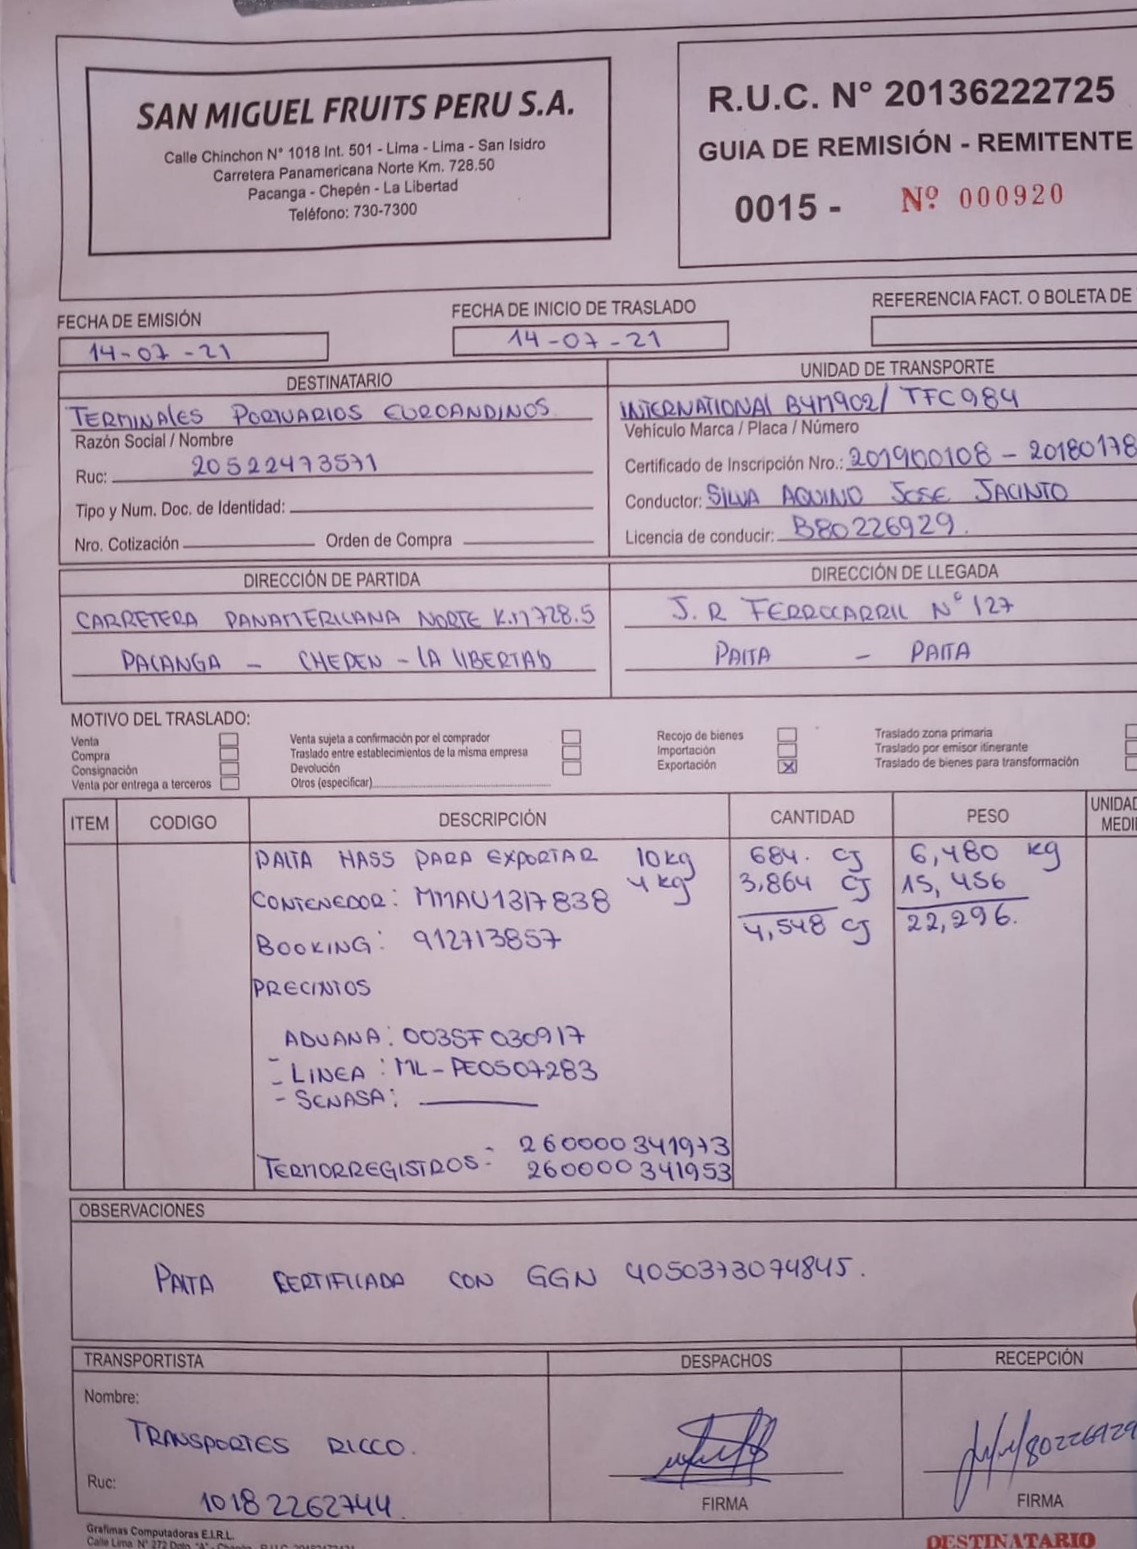 SAN MIGUEL FRUITS PERU S.A.
Calle Chinchon N° 1018 Int. 501 - Lima - Lima - San Isidro
Carretera Panamericana Norte Km. 728.50
Pacanga - Chepén - La Libertad
Teléfono: 730-7300
R.U.C. N° 20136222725
GUIA DE REMISIÓN - REMITENTE
0015 - Nº 000920
FECHA DE EMISIÓN
14-07-21
FECHA DE INICIO DE TRASLADO
14-07-21
REFERENCIA FACT. O BOLETA DE
DESTINATARIO
TERMINALES PORTUARIOS EUROANDINOS
Razón Social / Nombre
Ruc: 20522473571
Tipo y Num. Doc. de Identidad:
Nro. Cotización Orden de Compra
UNIDAD DE TRANSPORTE
INTERNATIONAL B4M902/ TFC984
Vehículo Marca / Placa / Número
Certificado de Inscripción Nro.: 201900108 - 20180178
Conductor: SILVA AQUINO JOSE JACINTO
Licencia de conducir: B80226929.
DIRECCIÓN DE PARTIDA
CARRETERA PANAMERICANA NORTE K.M 728.5
PACANGA - CHEPEN - LA LIBERTAD
DIRECCIÓN DE LLEGADA
J.R FERROCARRIL N° 127
PAITA - PAITA
MOTIVO DEL TRASLADO:
Venta
Compra
Consignación
Venta por entrega a terceros
Venta sujeta a confirmación por el comprador
Traslado entre establecimientos de la misma empresa
Devolución
Otros (especificar)
Recojo de bienes
Importación
Exportación X
Traslado zona primaria
Traslado por emisor itinerante
Traslado de bienes para transformación
ITEM CODIGO DESCRIPCIÓN CANTIDAD PESO UNIDAD
MEDI
PALTA HASS PARA EXPORTAR 10kg 684. CJ 6,480 kg
4 kg 3,864 CJ 15,456
CONTENEDOR: MMAU1317838
4,548 CJ 22,296.
BOOKING: 912713857
PRECINTOS
ADUANA: 003SF030917
- LINEA : ML-PE0507283
- SENASA:
TERMORREGISTROS: 260000341973
260000341953
OBSERVACIONES
PALTA CERTIFICADA CON GGN 4050373074845.
TRANSPORTISTA
Nombre:
TRANSPORTES RICCO.
Ruc:
10182262744
DESPACHOS
FIRMA
RECEPCIÓN
80226929
FIRMA
Grafimas Computadoras E.I.R.L.
DESTINATARIO